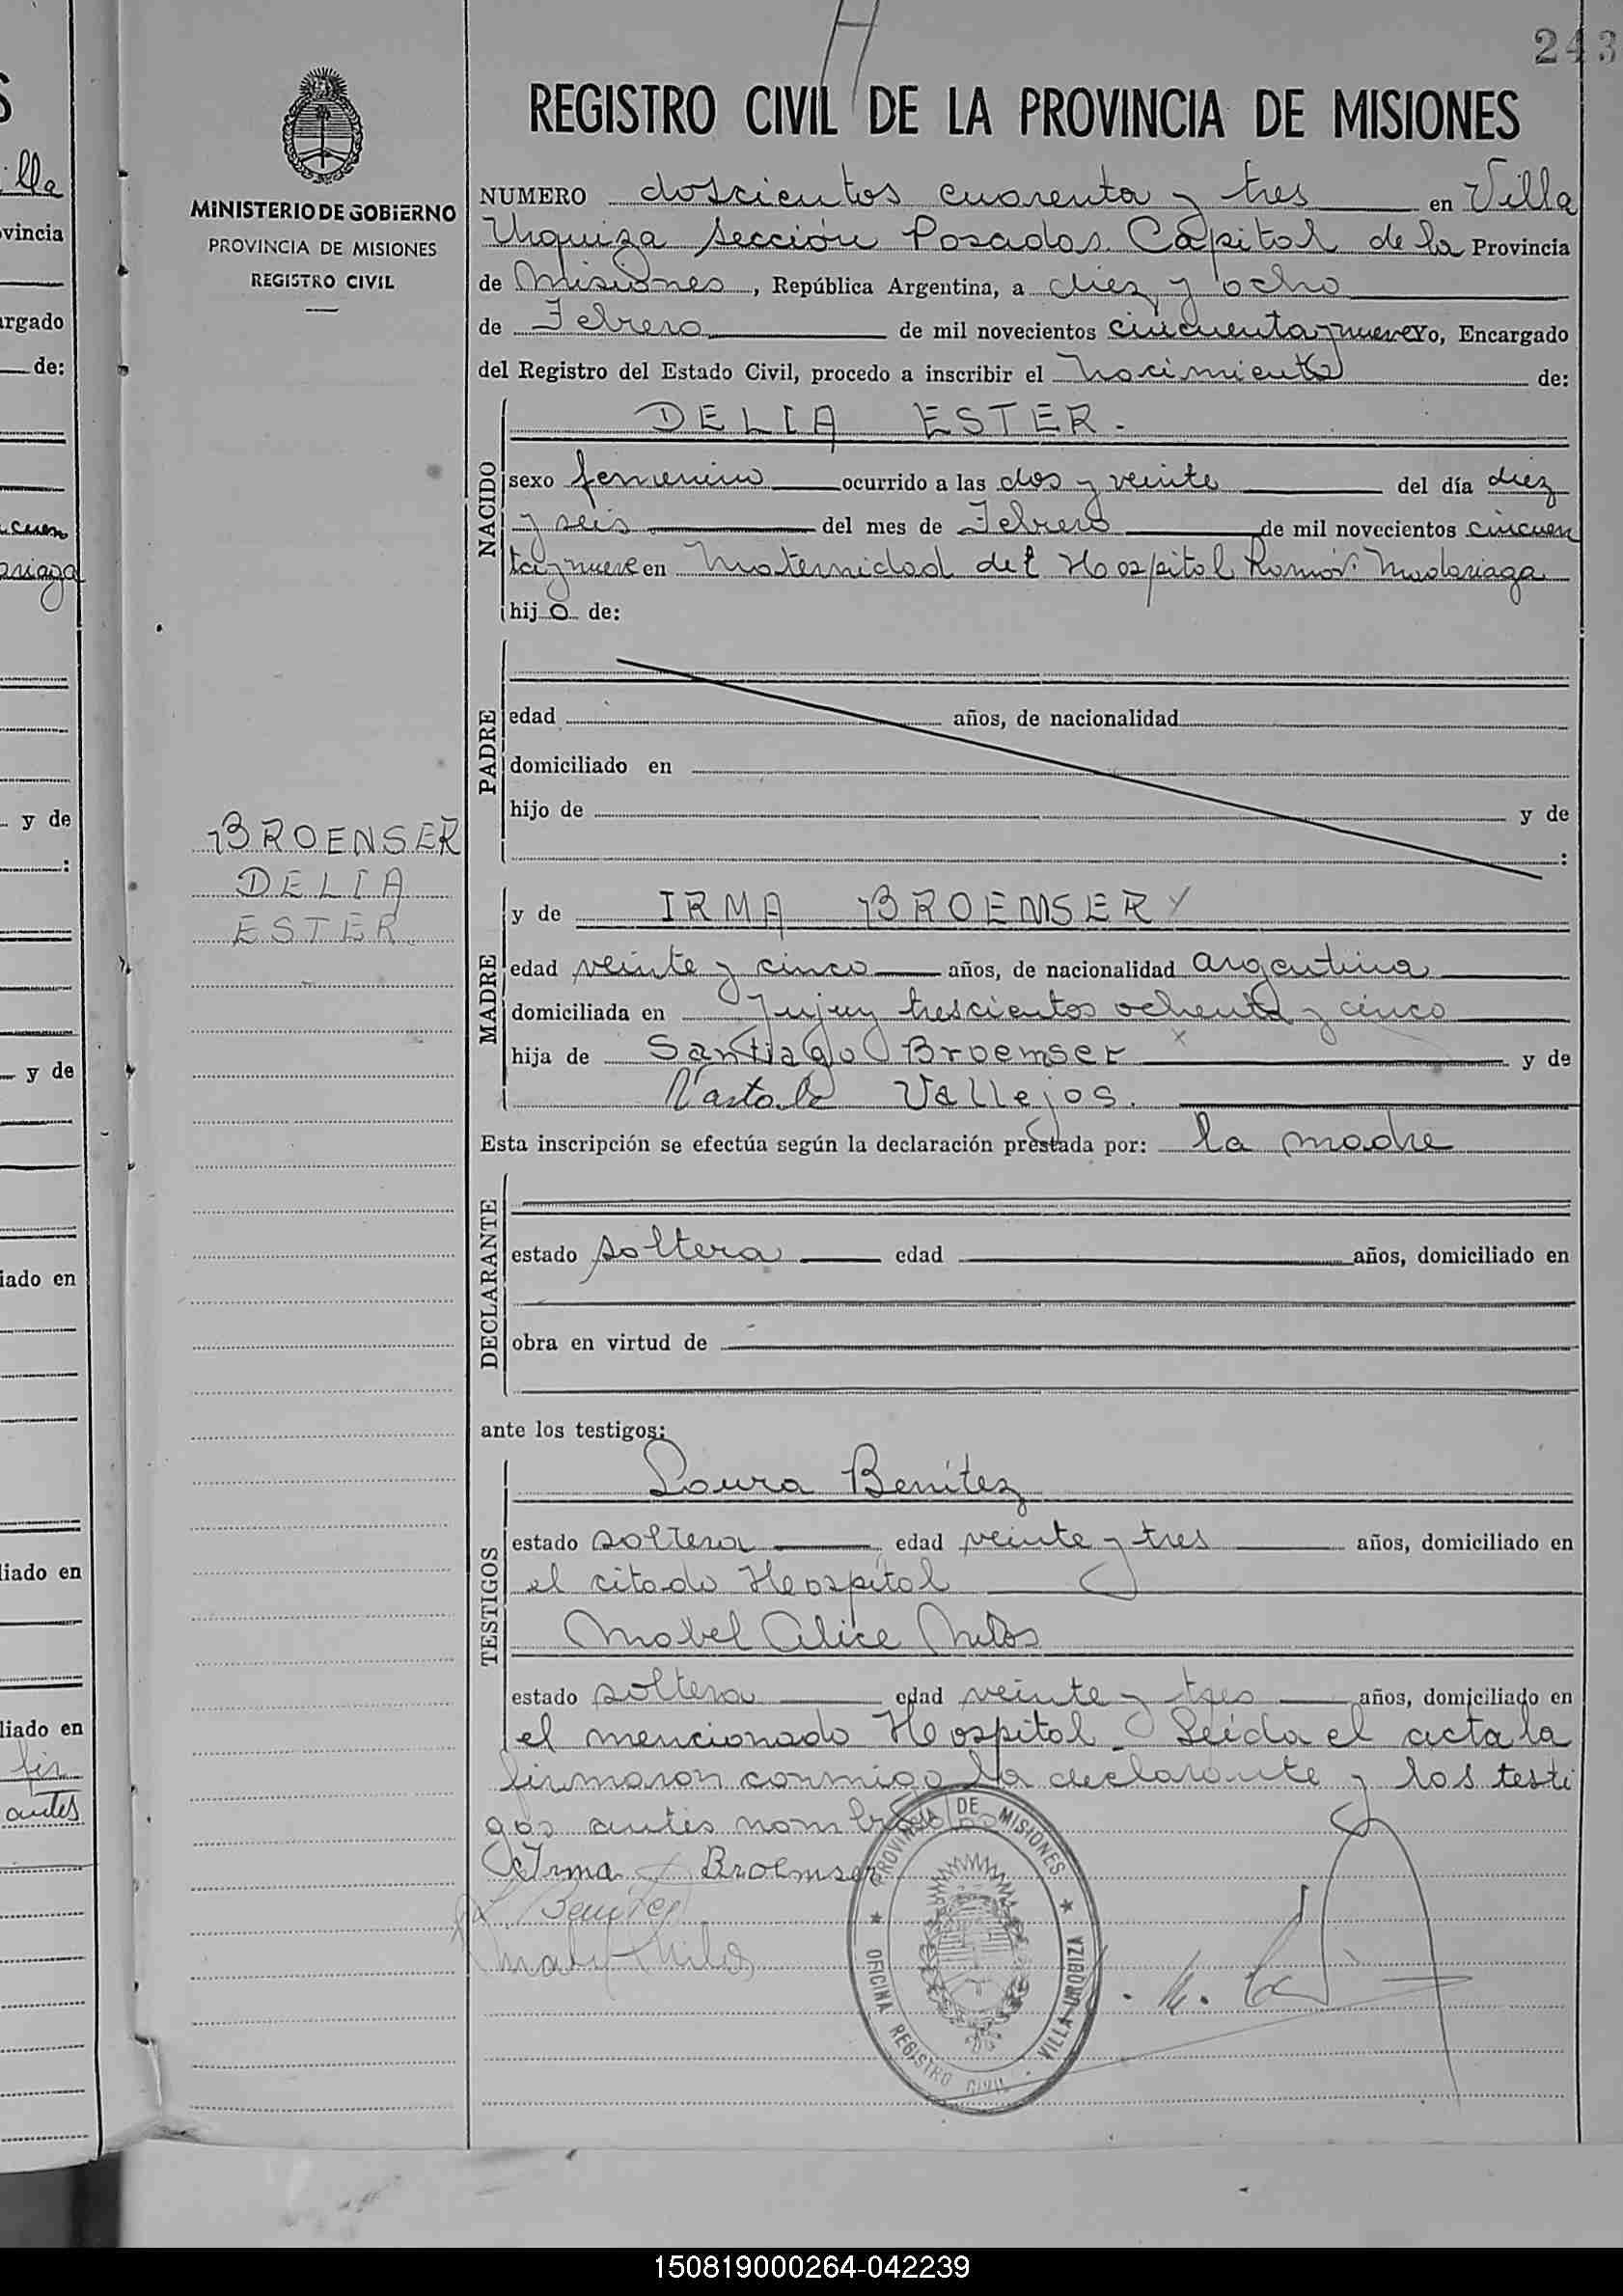 243
REGISTRO CIVIL DE LA PROVINCIA DE MISIONES
MINISTERIO DE GOBIERNO
PROVINCIA DE MISIONES
REGISTRO CIVIL
NUMERO doscientos cuarenta y tres en Villa
Urquiza Sección Posadas Capital de la Provincia
de Misiones, República Argentina, a diez y ocho
de Febrero de mil novecientos cincuenta y nueve Yo, Encargado
del Registro del Estado Civil, procedo a inscribir el Nacimiento de:
NACIDO
DELIA ESTER.
sexo femenino ocurrido a las dos y veinte del día diez
y seis del mes de Febrero de mil novecientos cincuen
ta y nueve en Maternidad del Hospital Ramón Madariaga
hij a de:
PADRE
edad años, de nacionalidad
domiciliado en
hijo de y de
:
BROENSER
DELIA
ESTER
MADRE
y de IRMA BROEMSER
edad veinte y cinco años, de nacionalidad argentina
domiciliada en Jujuy trescientos ochenta y cinco
hija de Santiago Broemser y de
Vallejos.
Esta inscripción se efectúa según la declaración prestada por: la madre
DECLARANTE
estado soltera edad años, domiciliado en
obra en virtud de
ante los testigos:
TESTIGOS
Laura Benítez
estado soltera edad veinte y tres años, domiciliado en
el citado Hospital
Mabel Alice
estado soltera edad veinte y tres años, domiciliado en
el mencionado Hospital. Leída el acta la
firmaron conmigo la declarante y los testi
gos antes nombrados
Irma Broemser
L. Benítez
PROVINCIA DE MISIONES
OFICINA REGISTRO CIVIL
VILLA URQUIZA
lla
vincia
argado
de:
cuen
ariaga
y de
:
y de
iado en
liado en
liado en
fir
antes
150819000264-042239